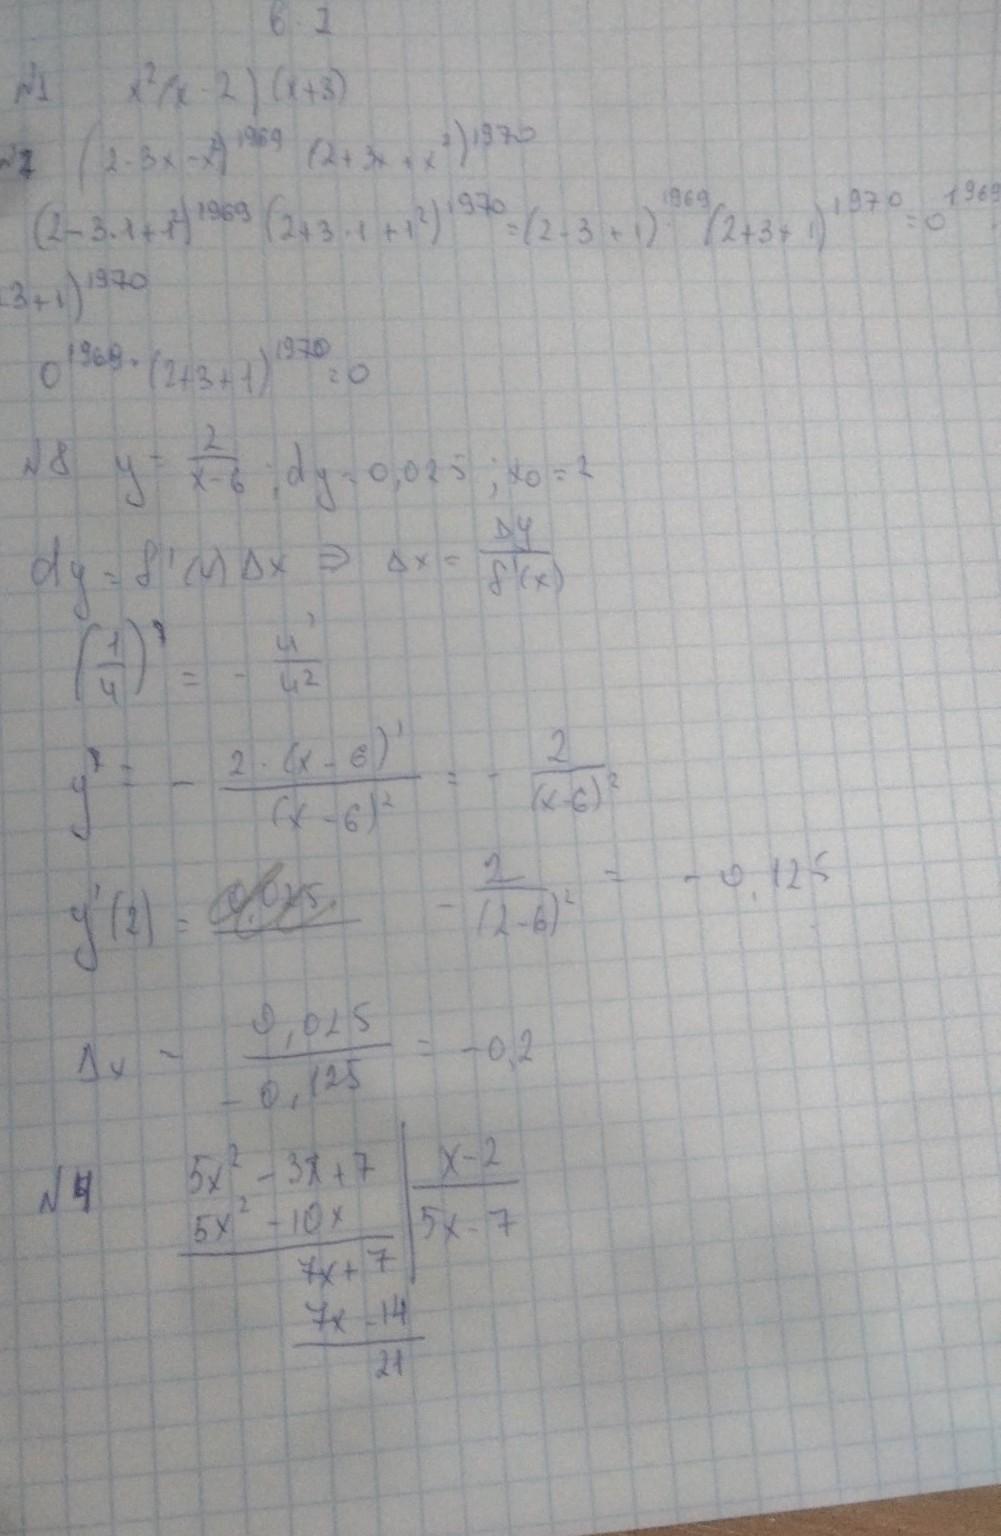 в. 2
№1 x²(x-2)(x+3)
(2-3x-x²)¹⁹⁶⁹ (2+3x+x²)¹⁹⁷⁰
(2-3·1+1²)¹⁹⁶⁹ (2+3·1+1²)¹⁹⁷⁰ = (2-3+1)¹⁹⁶⁹ (2+3+1)¹⁹⁷⁰ = 0¹⁹⁶⁹ ·
3+1)¹⁹⁷⁰
0¹⁹⁶⁹ · (2+3+1)¹⁹⁷⁰ = 0
№8 y = 2/(x-6) ; dy = 0,025 ; x0 = 2
dy = f'(x) Δx ⇒ Δx = Δy/f'(x)
(1/u)' = - u'/u²
y' = - 2·(x-6)'/(x-6)² = - 2/(x-6)²
y'(2) = - 2/(2-6)² = - 0,125
Δx = 0,025/-0,125 = -0,2
№4 5x² - 3x + 7 | x-2
5x² - 10x | 5x - 7
7x + 7
7x - 14
21